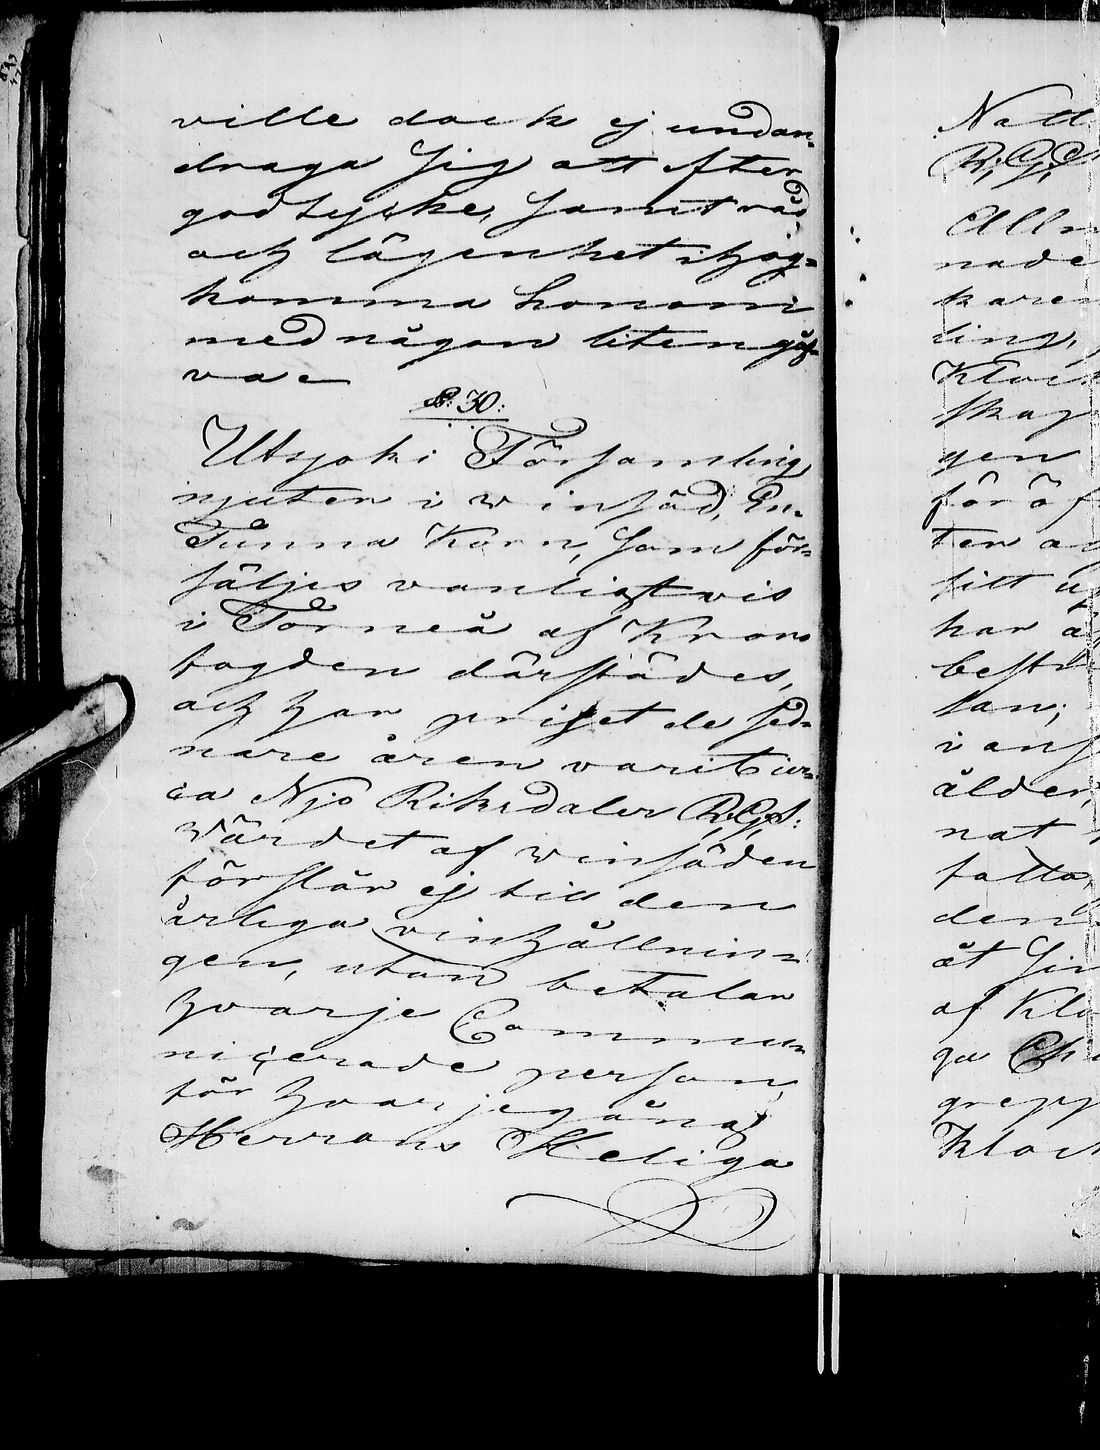 ville dock ej undan-
draga Sig att efter
godtycke, Samt råd
och lägenhet ihog-
komma honom
med någon liten gåf-
va
§: 30:
Utsjoki Församling
njuter i winsäd, En
Tunna Korn, Som för-
säljes vanligtvis
i Torneå af Krono
fogden därstädes,
och har priset de sed-
nare åren varit cir-
ca Njo Riksdaler R;G;S:
Värdet af winsäden
förslår ej till den
årliga vinhållnin-
gen, utan betalar
hvarje Commu-
nicerade person,
för hvarje gång
Herrans Heliga
Natt
R;G;S
Alln
nade
karen
ling,
Klock
skap
gen
för öf
ten
sitt
har
bestr
lan;
i ans
ålder,
nat
fatta,
den
åt Sin
af Klo
ga Ch
grepp
Klock